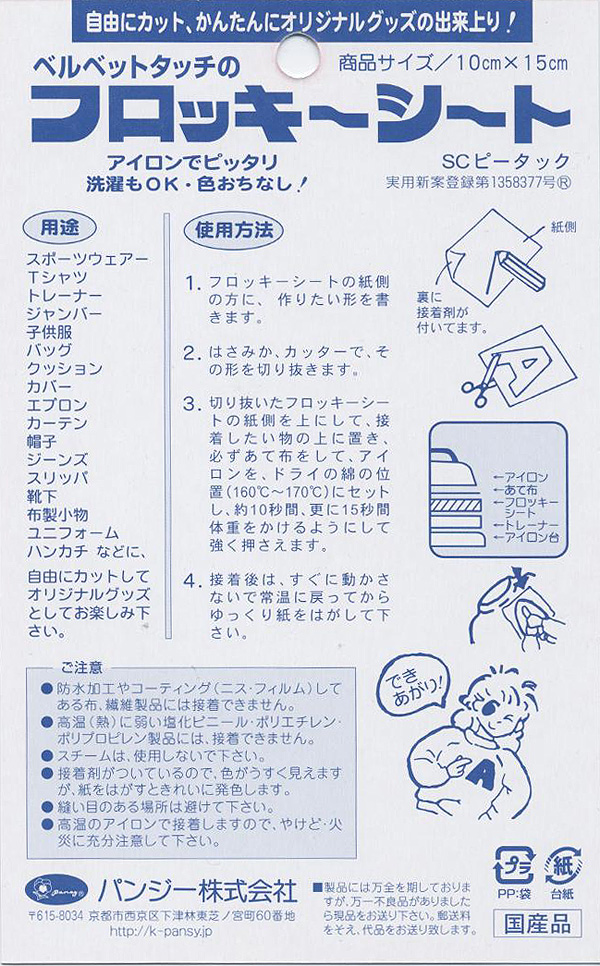 自由にカット、かんたんにオリジナルグッズの出来上り!
ベルベットタッチの
商品サイズ/10cm×15cm
フロッキーシート
アイロンでピッタリ
洗濯もOK・色おちなし!
SCピータック
実用新案登録第1358377号®
用途
スポーツウェアー
Tシャツ
トレーナー
ジャンバー
子供服
バッグ
クッション
カバー
エプロン
カーテン
帽子
ジーンズ
スリッパ
靴下
布製小物
ユニフォーム
ハンカチ などに、
自由にカットして
オリジナルグッズ
としてお楽しみ下
さい。
使用方法
1. フロッキーシートの紙側
の方に、作りたい形を書
きます。
2. はさみか、カッターで、そ
の形を切り抜きます。
3. 切り抜いたフロッキーシー
トの紙側を上にして、接
着したい物の上に置き、
必ずあて布をして、アイ
ロンを、ドライの綿の位
置(160℃~170℃)にセット
し、約10秒間、更に15秒間
体重をかけるようにして
強く押さえます。
4. 接着後は、すぐに動かさ
ないで常温に戻ってから
ゆっくり紙をはがして下
さい。
紙側
裏に
接着剤が
付いてます。
A
←アイロン
←あて布
←フロッキー
シート
←トレーナー
←アイロン台
でき
あがり!
A
ご注意
●防水加工やコーティング(ニス・フィルム)して
ある布、繊維製品には接着できません。
●高温(熱)に弱い塩化ビニール・ポリエチレン・
ポリプロピレン製品には、接着できません。
●スチームは、使用しないで下さい。
●接着剤がついているので、色がうすく見えます
が、紙をはがすときれいに発色します。
●縫い目のある場所は避けて下さい。
●高温のアイロンで接着しますので、やけど・火
災に充分注意して下さい。
pansy®
パンジー株式会社
〒615-8034 京都市西京区下津林東芝ノ宮町60番地
http://k-pansy.jp
■製品には万全を期しておりま
すが、万一不良品がありました
ら現品をお送り下さい。郵送料
をそえ、代品をお送り致します。
プラ
PP:袋
紙
台紙
国産品